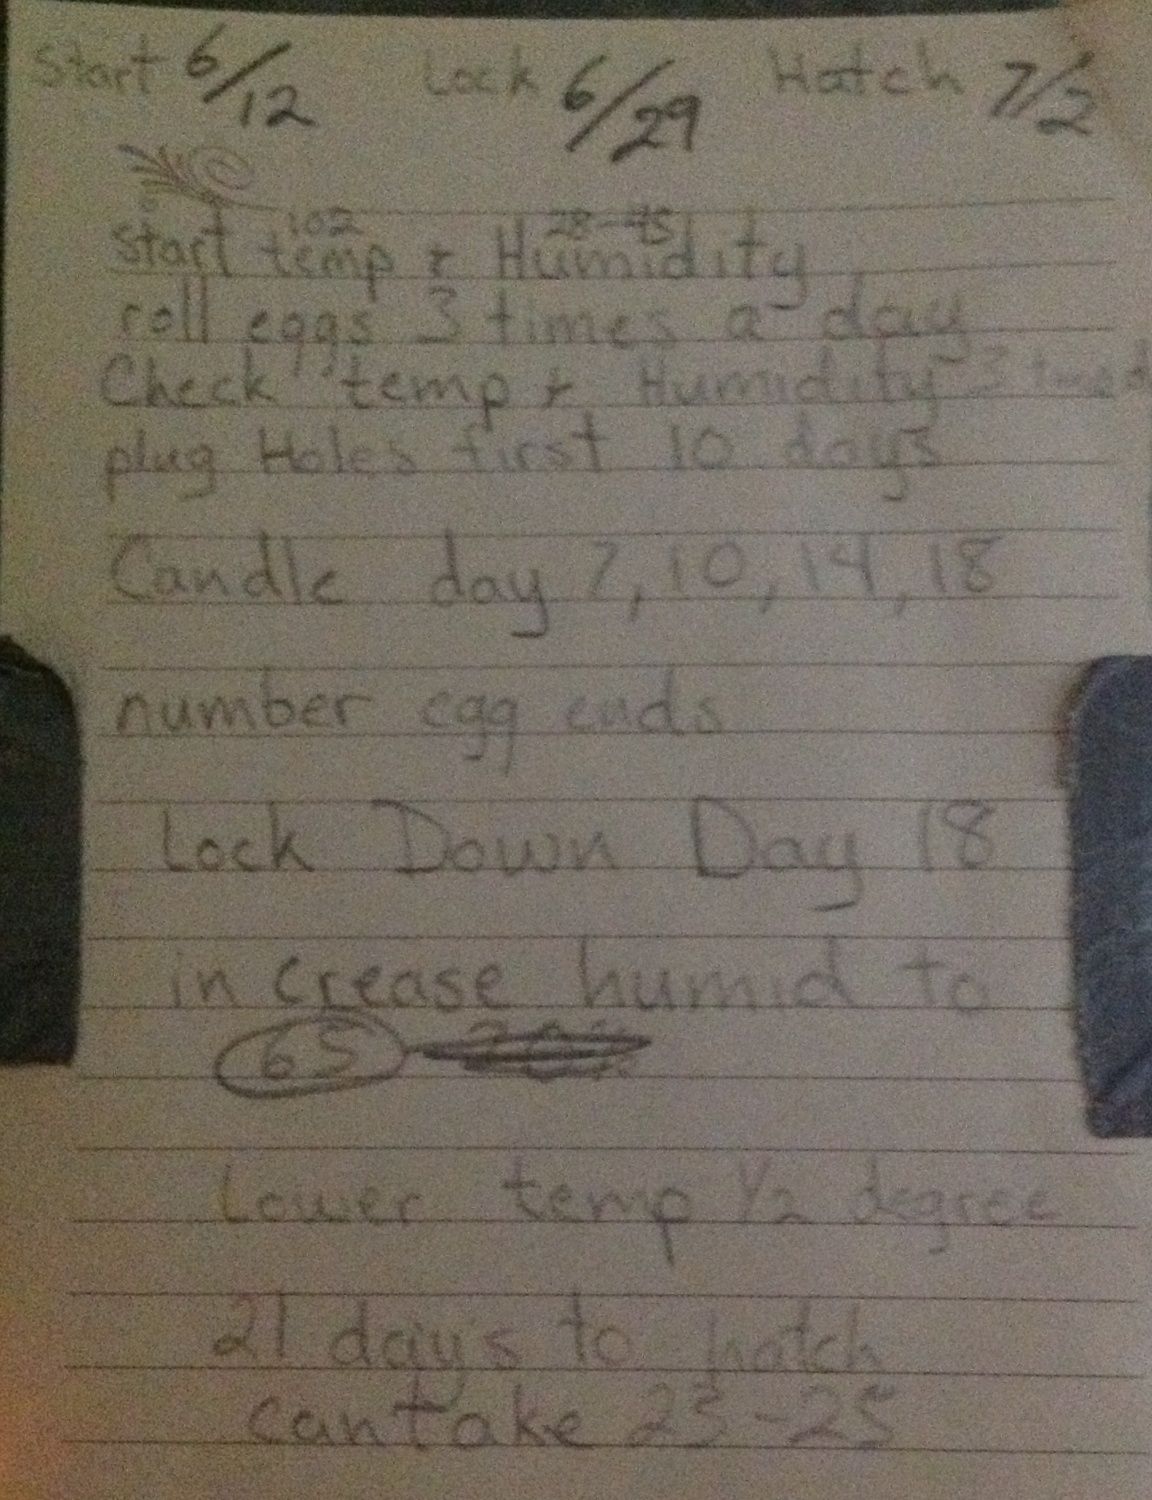 Start 6/12 Lock 6/29 Hatch 7/2
102 28-45
Start temp + Humidity
roll eggs 3 times a day
Check temp + Humidity 3
plug Holes first 10 days
Candle day 7, 10, 14, 18
number egg ends
Lock Down Day 18
increase humid to
65
Lower temp 1/2 degree
21 days to hatch
can take 23-25